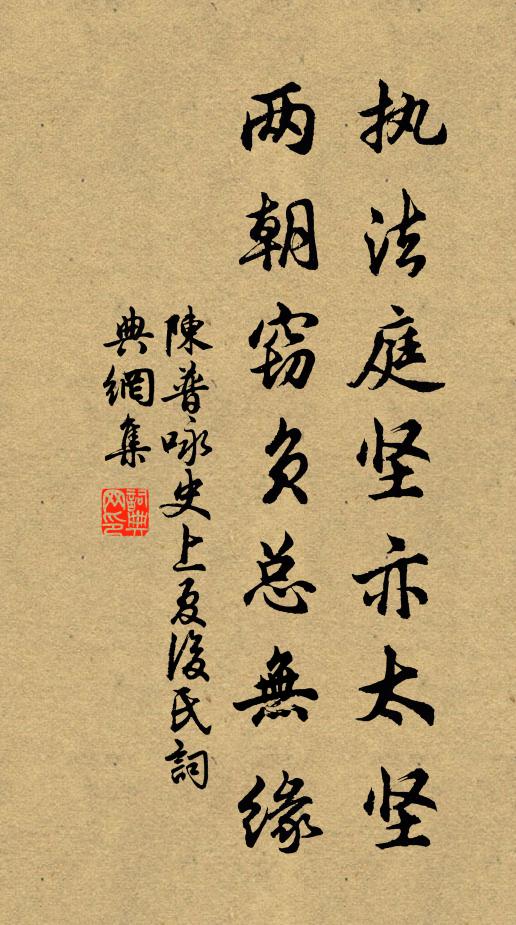 执法庭坚亦太坚
两朝窃负总無缘
陳普咏史上夏後氏詞
典網集
詞典網印